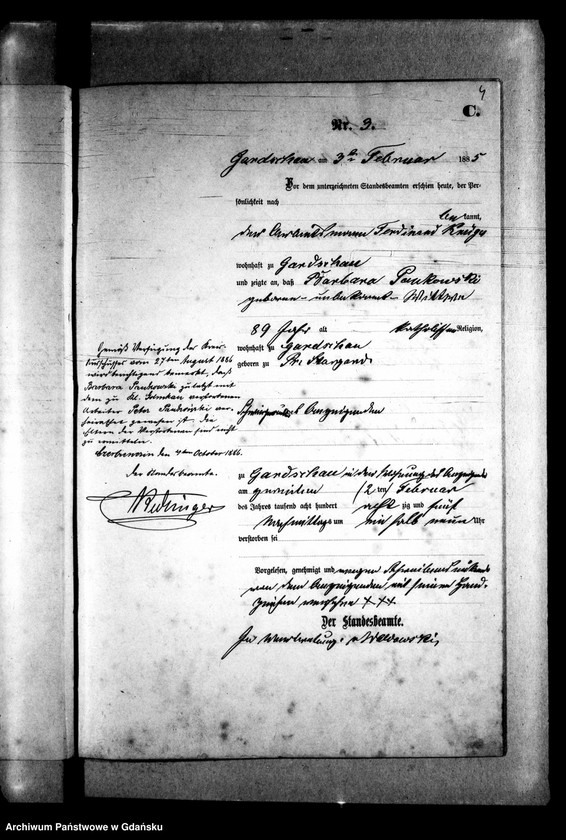 4
C.
Nr. 3.
Gardschau am 3ten Februar 1885
Vor dem unterzeichneten Standesbeamten erschien heute, der Per-
sönlichkeit nach
be kannt,
der Ferdinand
wohnhaft zu Gardschau
und zeigte an, daß Barbara Pankowski
geborene unbekannt Wittwe
89 Jahr alt katholischer Religion,
wohnhaft zu Gardschau
geboren zu Pr. Stargard
des Anzeigenden
zu Gardschau in der Wohnung des Anzeigenden
am zweiten (2ten) Februar
des Jahres tausend acht hundert acht zig und fünf
Nachmittags um ein halb neun Uhr
verstorben sei
Vorgelesen, genehmigt und wegen Schreibensunkunde
von dem Anzeigenden mit seinem Hand-
zeichen versehen + + +
Der Standesbeamte.
In Vertretung.
Gemäß Verfügung des Kreis-
Ausschusses vom 27ten August 1886
wird berichtigend bemerkt, daß
Barbara Pankowski zuletzt mit
dem zu Kl. verstorbenen
Arbeiter Peter Pankowski ver-
heirathet gewesen ist, die
Eltern der Verstorbenen sind nicht
zu ermitteln.
den 4ten October 1886.
Der Standesbeamte.
Archiwum Państwowe w Gdańsku